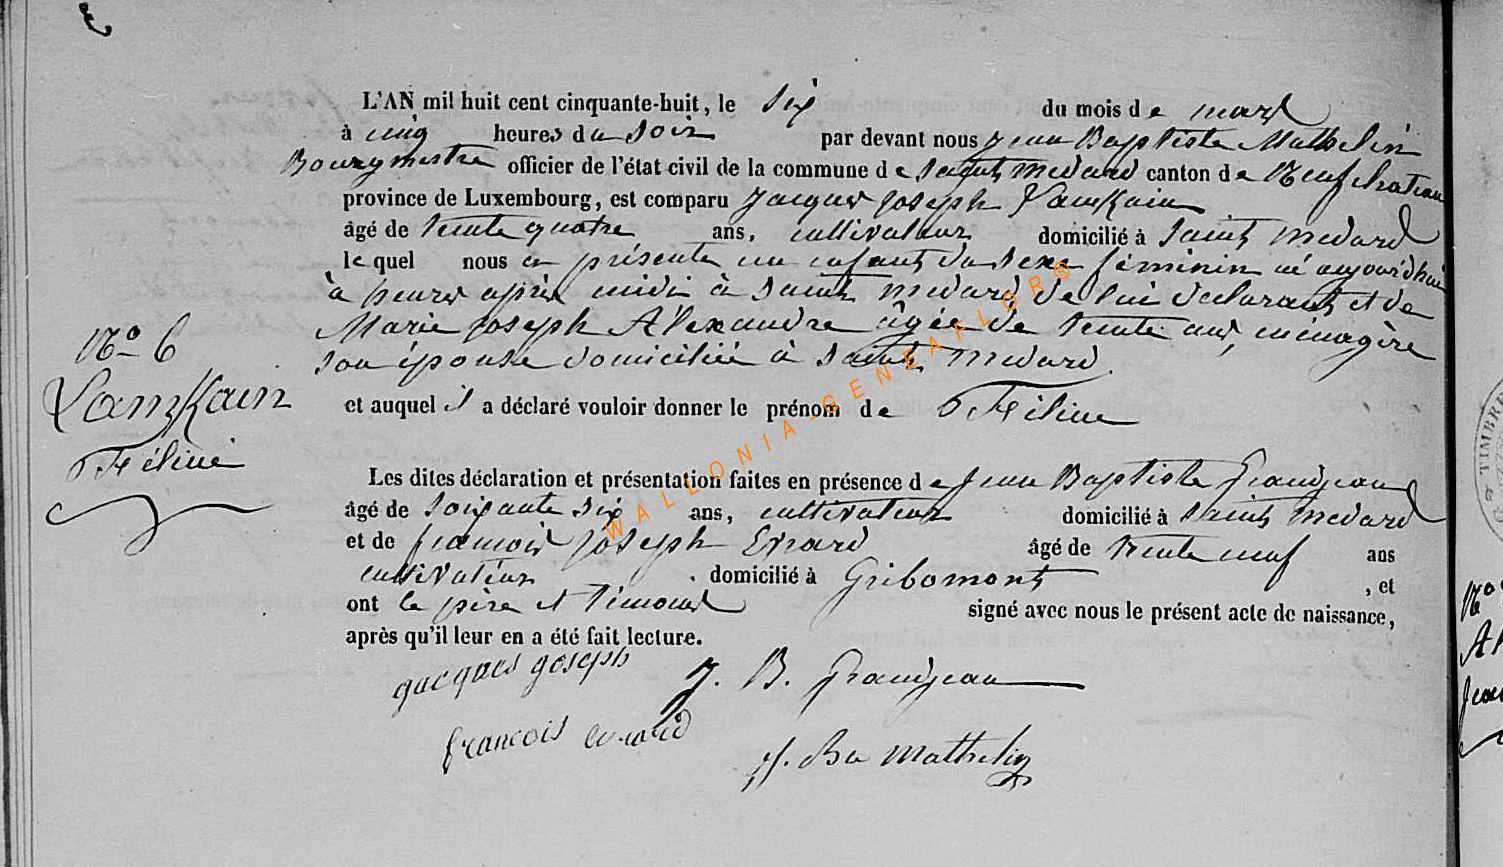 L'AN mil huit cent cinquante-huit, le six du mois de mars
à cinq heures du soir par devant nous Jean Baptiste Mathelin
Bourgmestre officier de l'état civil de la commune de Saint Medard canton de Neufchateau
province de Luxembourg, est comparu Jacques Joseph Lamkain
âgé de trente quatre ans, cultivateur domicilié à Saint Medard
lequel nous a présenté un enfant du sexe féminin né aujourd'hui
à heures après midi à Saint Medard, de lui déclarant et de
Marie Joseph Alexandre âgée de trente ans, ménagère
son épouse domiciliée à Saint Medard.
et auquel il a déclaré vouloir donner le prénom de Féline
Les dites déclaration et présentation faites en présence de Jean Baptiste Grandjean
âgé de soixante six ans, cultivateur domicilié à Saint Medard
et de françois Joseph Evrard âgé de trente neuf ans
cultivateur domicilié à Gribomont, et
ont le père et témoins signé avec nous le présent acte de naissance,
après qu'il leur en a été fait lecture.
jacques joseph J. B. Grandjean
francois evrard
J. Ba Mathelin
No 6
Lamkain
Féline
WALLONIA-GENEAFLOR®
TIMBRE
No